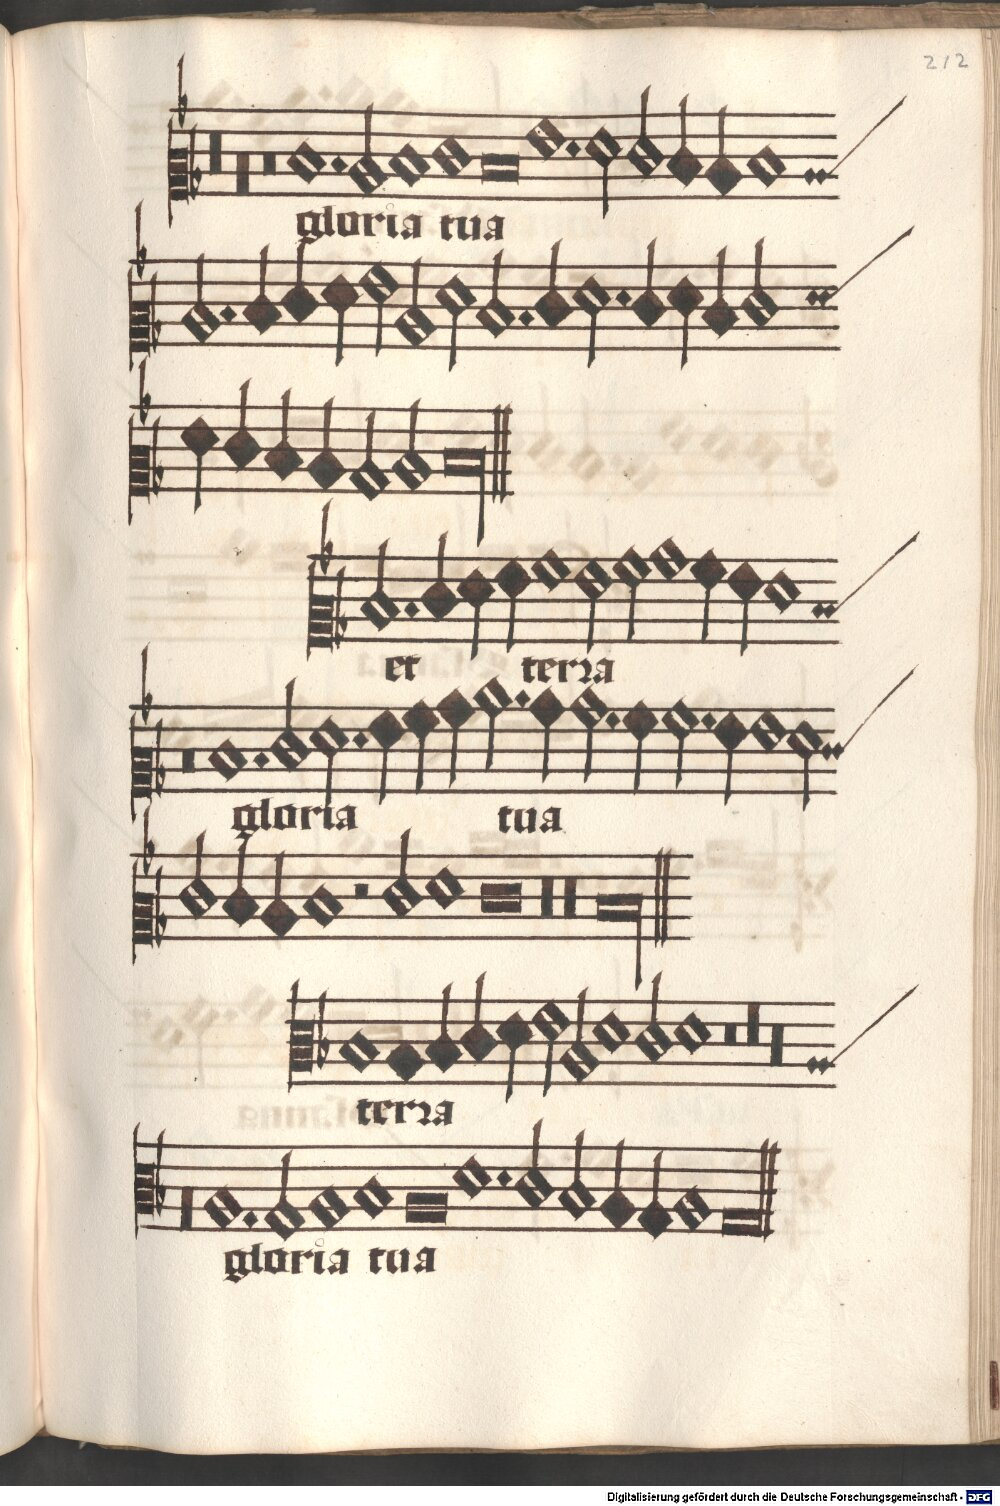 212
gloria tua
et terra
gloria tua
terra
gloria tua
Digitalisierung gefördert durch die Deutsche Forschungsgemeinschaft - DFG